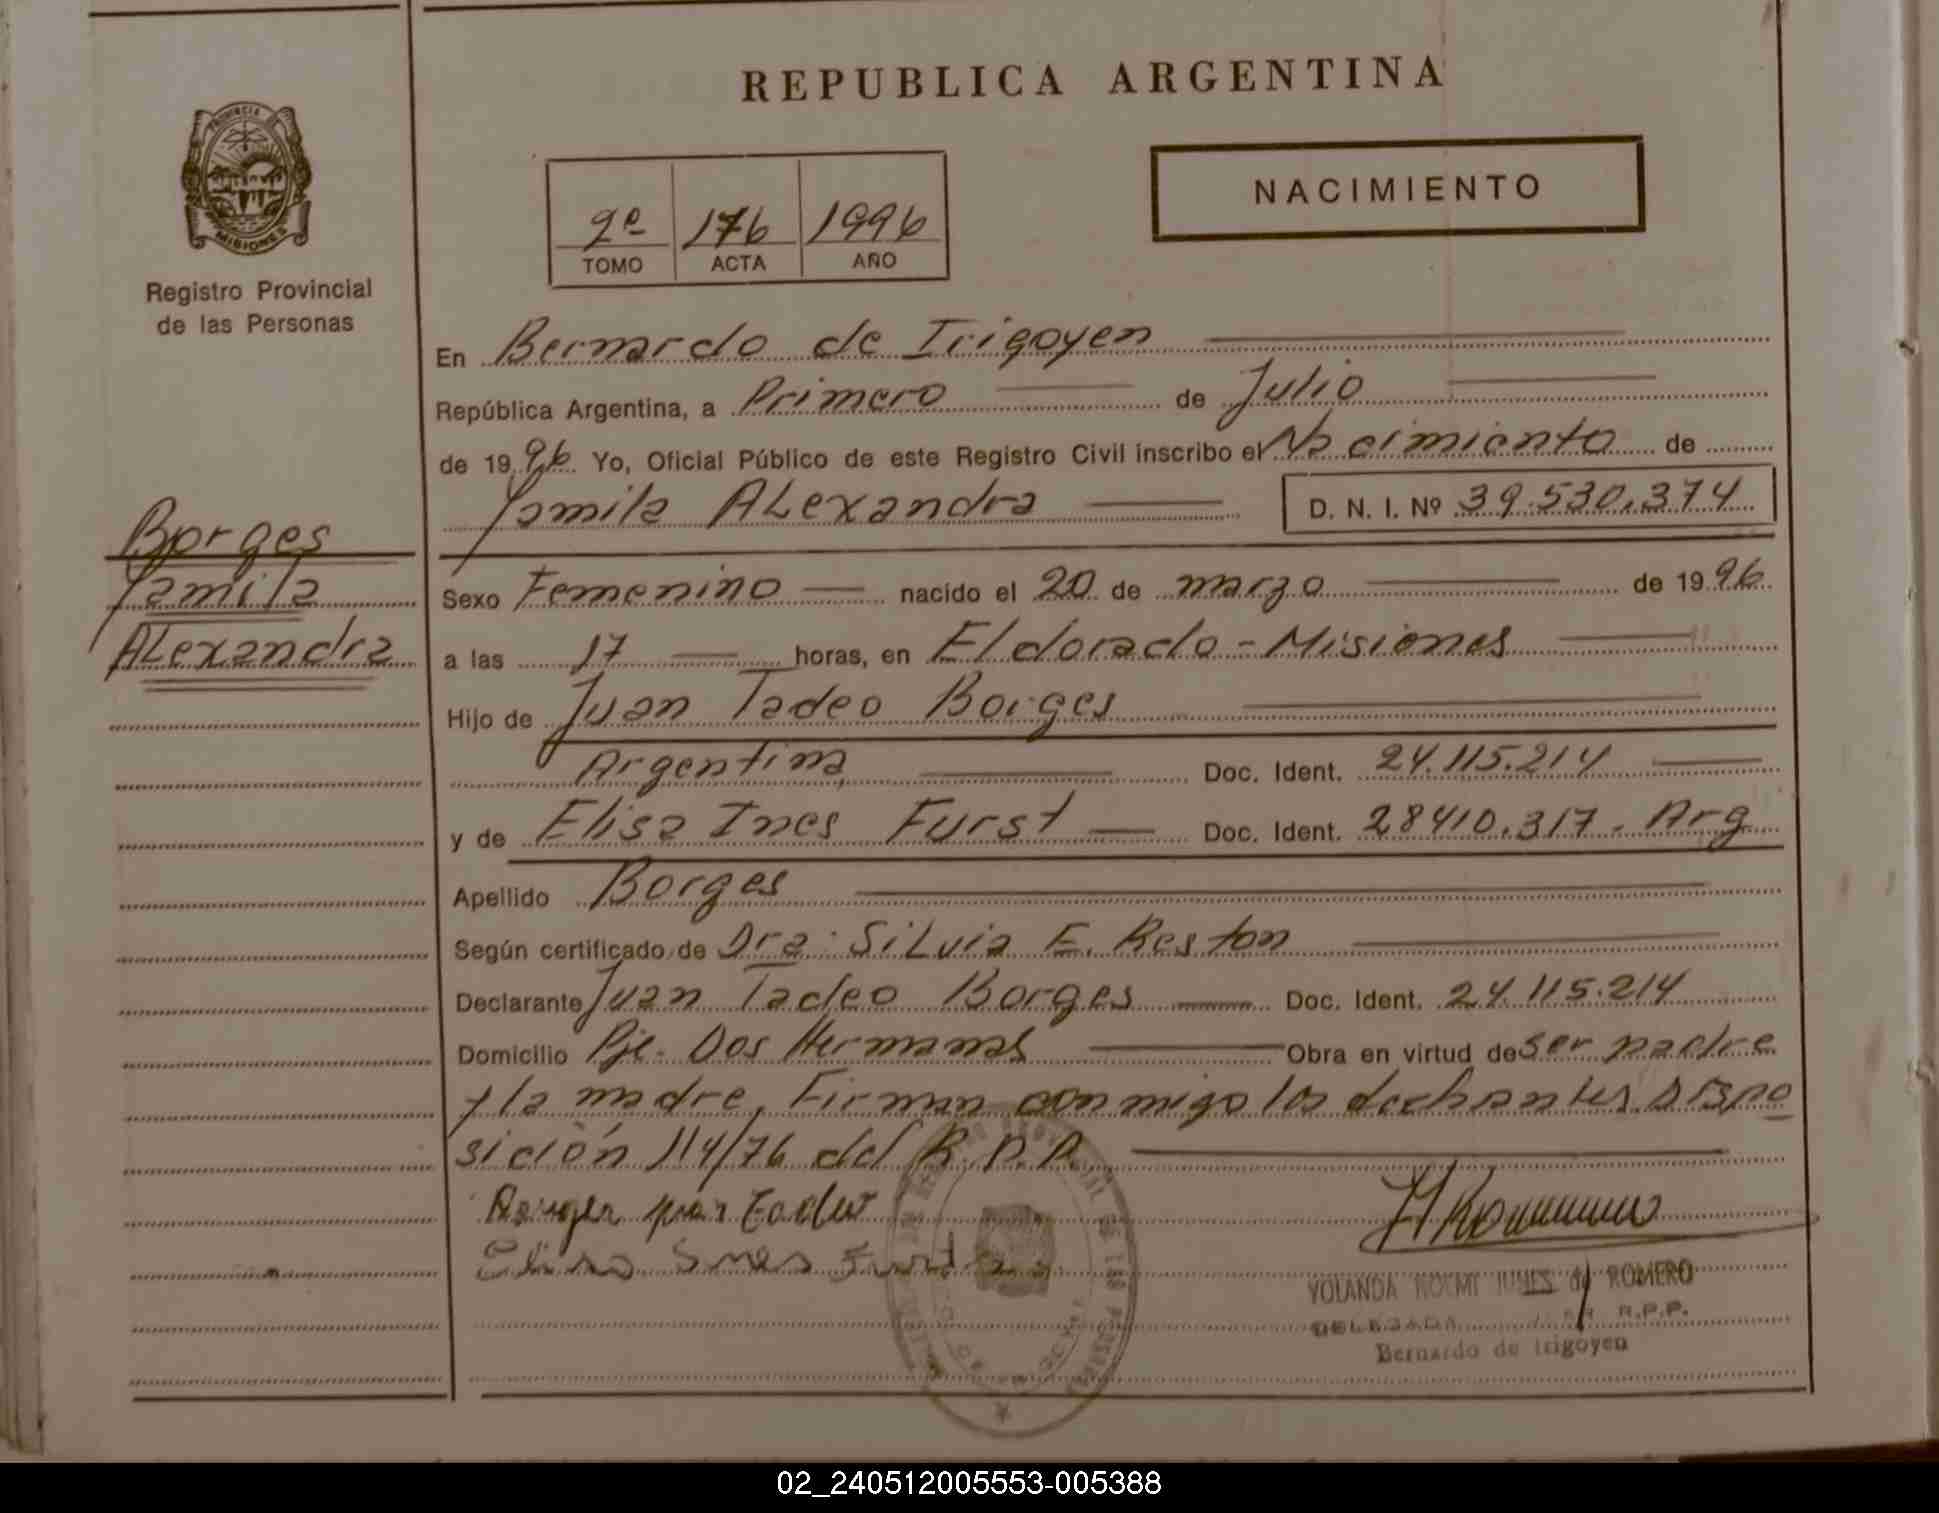 REPUBLICA ARGENTINA
PROVINCIA DE
MISIONES
Registro Provincial
de las Personas
NACIMIENTO
2º 176 1996
TOMO ACTA AÑO
En Bernardo de Irigoyen
República Argentina, a Primero de Julio
de 1996 Yo, Oficial Público de este Registro Civil inscribo el Nacimiento de
Yamila ALexandra D. N. I. Nº 39.530.374
Borges
Yamila
ALexandra
Sexo Femenino nacido el 20 de marzo de 1996
a las 17 horas, en Eldorado - Misiones
Hijo de Juan Tadeo Borges
Argentina Doc. Ident. 24.115.214
y de Elisa Ines Furst Doc. Ident. 28410.317. Arg
Apellido Borges
Según certificado de Dra: SiLvia E. Reston
Declarante Juan Tadeo Borges Doc. Ident. 24.115.214
Domicilio Pje. Dos Hermanas Obra en virtud de ser padre
y la madre, Firman conmigo los declarantes Dispo
sición 114/76 del R.P.P.
Elisa Ines Furst
YOLANDA NOEMI JUNES de ROMERO
DELEGADA R.P.P.
Bernardo de Irigoyen
02_240512005553-005388